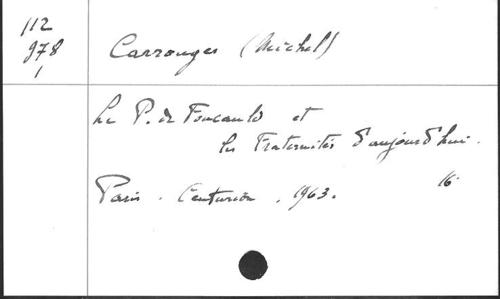 112
978
1
Carrouges (Michel)
Le P. de Foucauld et
les Fraternités d'aujourd'hui.
Paris. Centurion, 1963. 16°